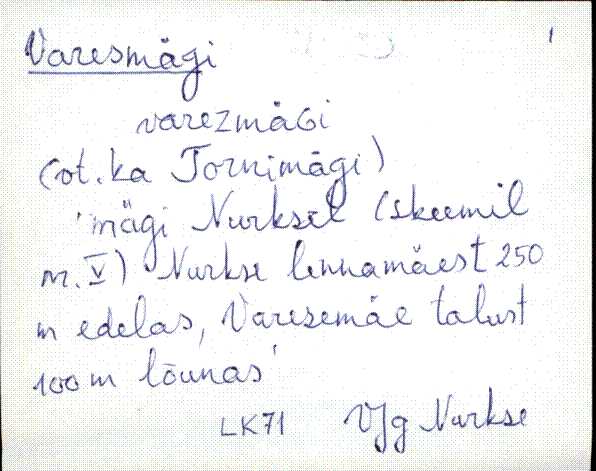 Varesmägi
varezmäGi
(vt. ka Tornimägi)
'mägi Nurksel (skeemil
nr. V) Nurkse linnamäest 250
m edelas, Varesemäe talust
100 m lõunas'
LK71 VJg Nurkse